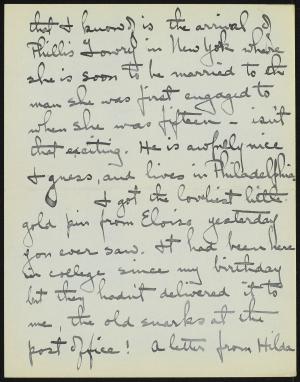 that I know of is the arrival of
Phillis Lowrey in New York where
she is soon to be married to the
man she was first engaged to
when she was fifteen - isn't
that exciting. He is awfully nice
I guess, and lives in Philadelphia
I got the loveliest little
gold pin from Eloise yesterday
you ever saw. It had been here
in college since my birthday
but they hadn't delivered it to
me, the old snarks at the
post office! A letter from Hilda